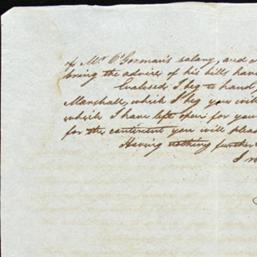 of Mr O'Gorman's salary, and a
bring the advice of his bills have
Enclosed I beg to hand,
Marshall, which I beg you will
which I have left open for you
for the continent you will pleas
Having nothing further
I